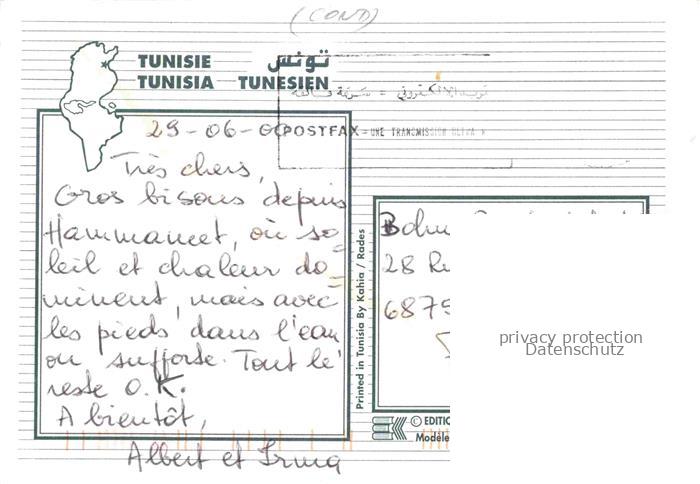 (COND)
TUNISIE تونس
TUNISIA TUNESIEN
29-06-00
POSTFAX - UNE TRANSMISSION
Très chers,
Gros bisous depuis
Hammamet, où so=
leil et chaleur do=
minent, mais avec
les pieds dans l'eau
on supporte. Tout le
reste O.K.
A bientôt,
Albert et Irma
Printed in Tunisia By Kahia / Rades
28 Ru
6875
© EDITIO
Modèle
privacy protection
Datenschutz